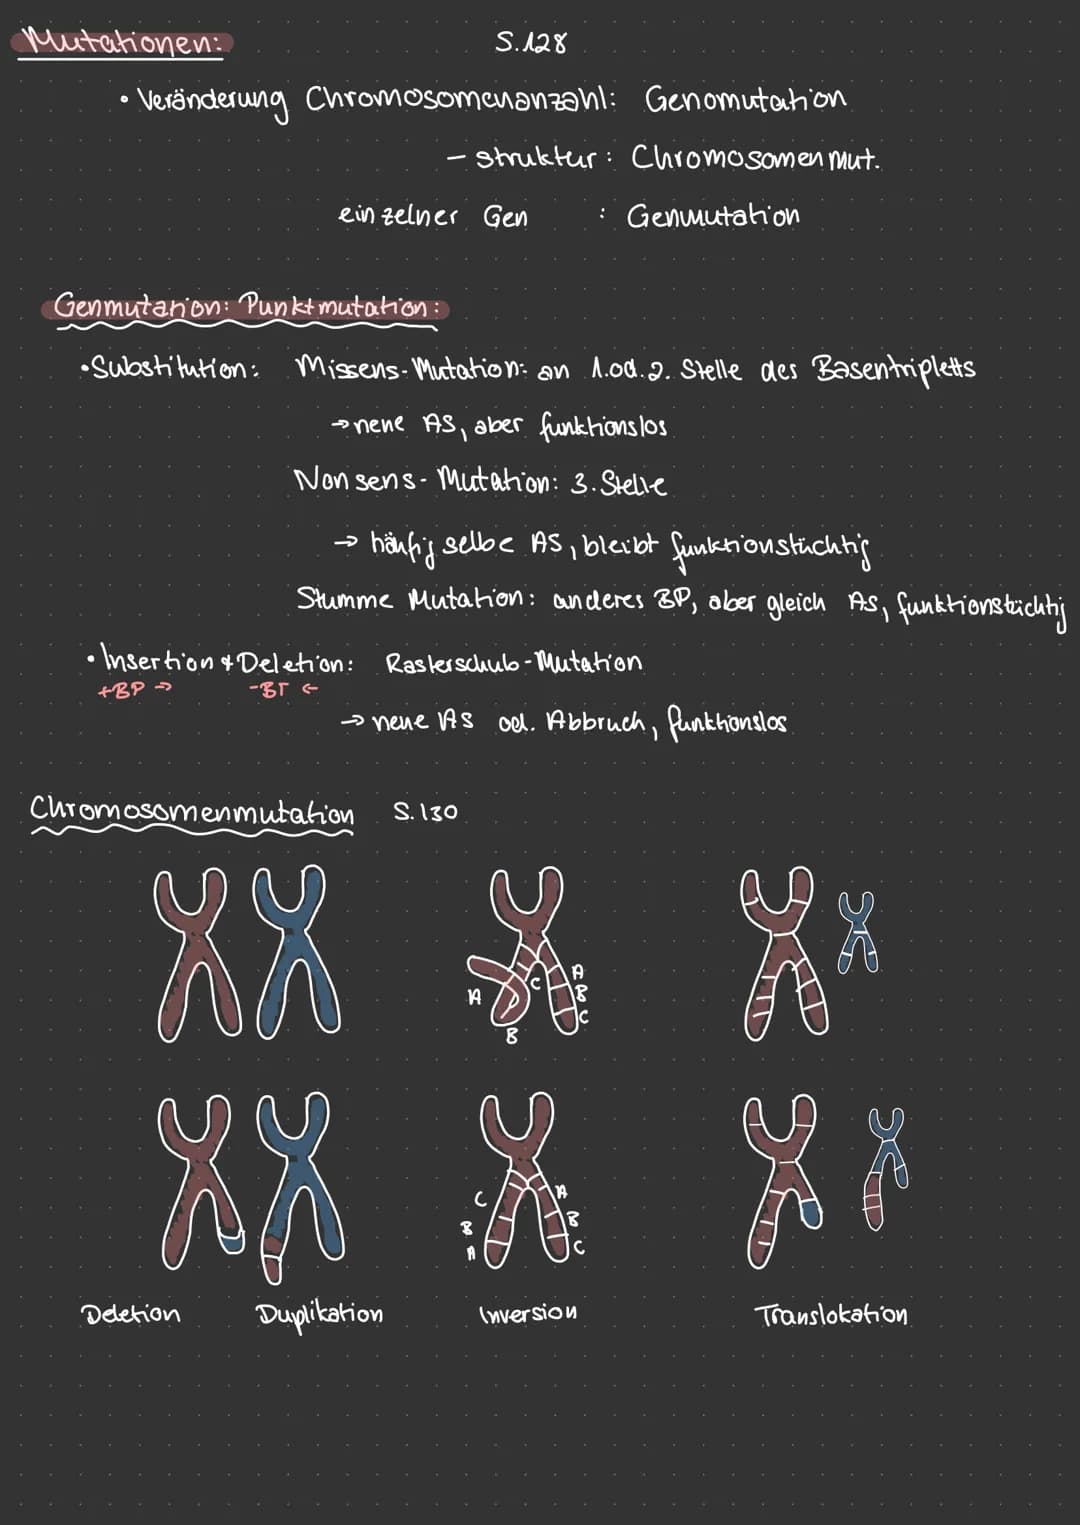 Mutationen: S.128
• Veränderung Chromosomenanzahl: Genomutation
- struktur: Chromosomenmut.
einzelner Gen : Genmutation
Genmutation: Punktmutation:
• Substitution: Missens-Mutation: an 1.od.2. Stelle des Basentripletts
→ neue AS, aber funktionslos
Nonsens-Mutation: 3. Stelle
→ häufig selbe AS, bleibt funktionstüchtig
Stumme Mutation: anderes BP, aber gleich AS, funktionstüchtig
• Insertion & Deletion: Rasterschub-Mutation
+BP → -BT ←
→ neue AS od. Abbruch, funktionslos
Chromosomenmutation S.130
A B C A B C
C B A A B C
Deletion Duplikation Inversion Translokation